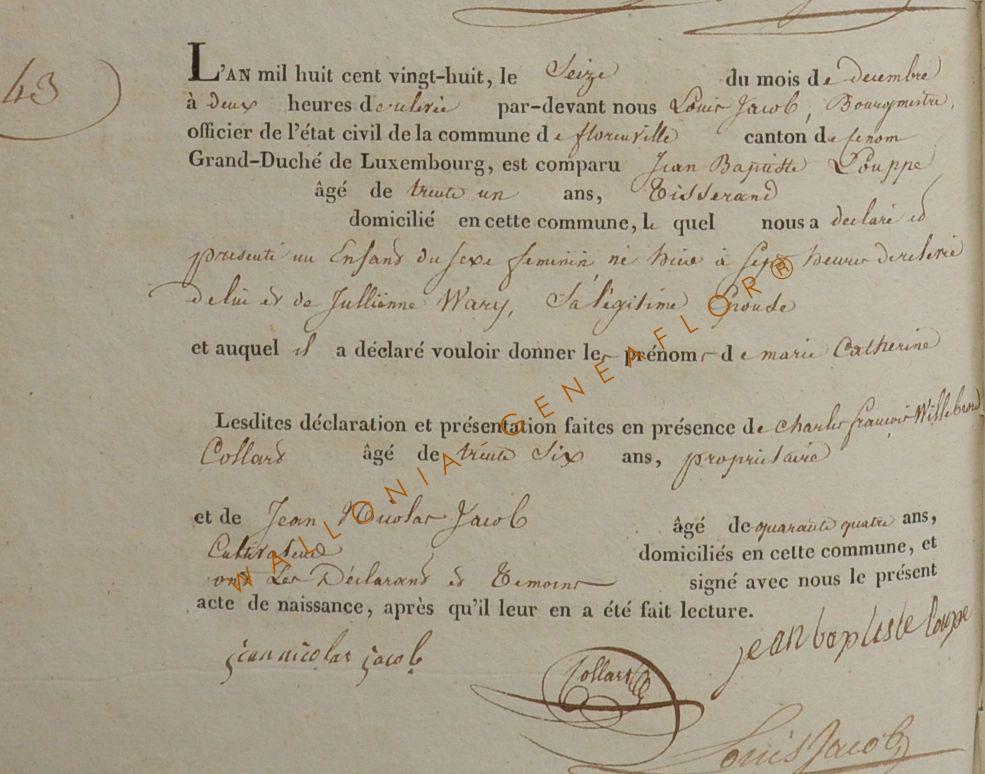 43
L'AN mil huit cent vingt-huit, le Seize du mois de decembre
à deux heures de relevée par-devant nous Louis Jacob, Bourgmestre,
officier de l'état civil de la commune de florenville canton de
Grand-Duché de Luxembourg, est comparu Jean Baptiste Louppe
âgé de trente un ans, Tisserand
domicilié en cette commune, le quel nous a declaré et
presenté un Enfand du sexe feminin, né hier à sept heures de relevée
de lui et de Jullienne Wary, Sa légitime Epouse
et auquel il a déclaré vouloir donner les prénoms de marie Catherine
Lesdites déclaration et présentation faites en présence de charles françois Willebrord
Collard âgé de trente Six ans, proprietaire
et de Jean Nicolas Jacob âgé de quarante quatre ans,
Cultivateur domiciliés en cette commune, et
ont Les Déclarand et Temoins signé avec nous le présent
acte de naissance, après qu'il leur en a été fait lecture.
jean nicolas jacob Collard jean baptiste loupe
Louis Jacob
WALLONIA GENEAFLOR®